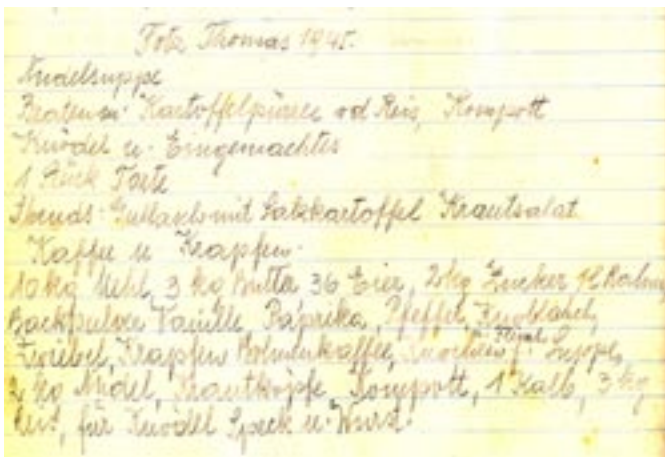 Thomas 1945.
Nudelsuppe
Braten m. Kartoffelpüree od Reis, Kompott
Knödel u. Eingemachtes
1 Stück Torte
Abends Gullasch mit Salzkartoffel Krautsalat
Kaffee u Krapfen.
10 kg Mehl, 3 kg Butter 36 Eier, 2 kg Zucker
Backpulver Vanille, Paprika, Pfeffer, Knoblauch,
Zwiebel, Krapfen Bohnenkaffee, Knochen f. Suppe,
2 kg Nudel, Krautköpfe, Kompott, 1 Kalb, 3 kg
Reis, für Knödel Speck u. Wurst.